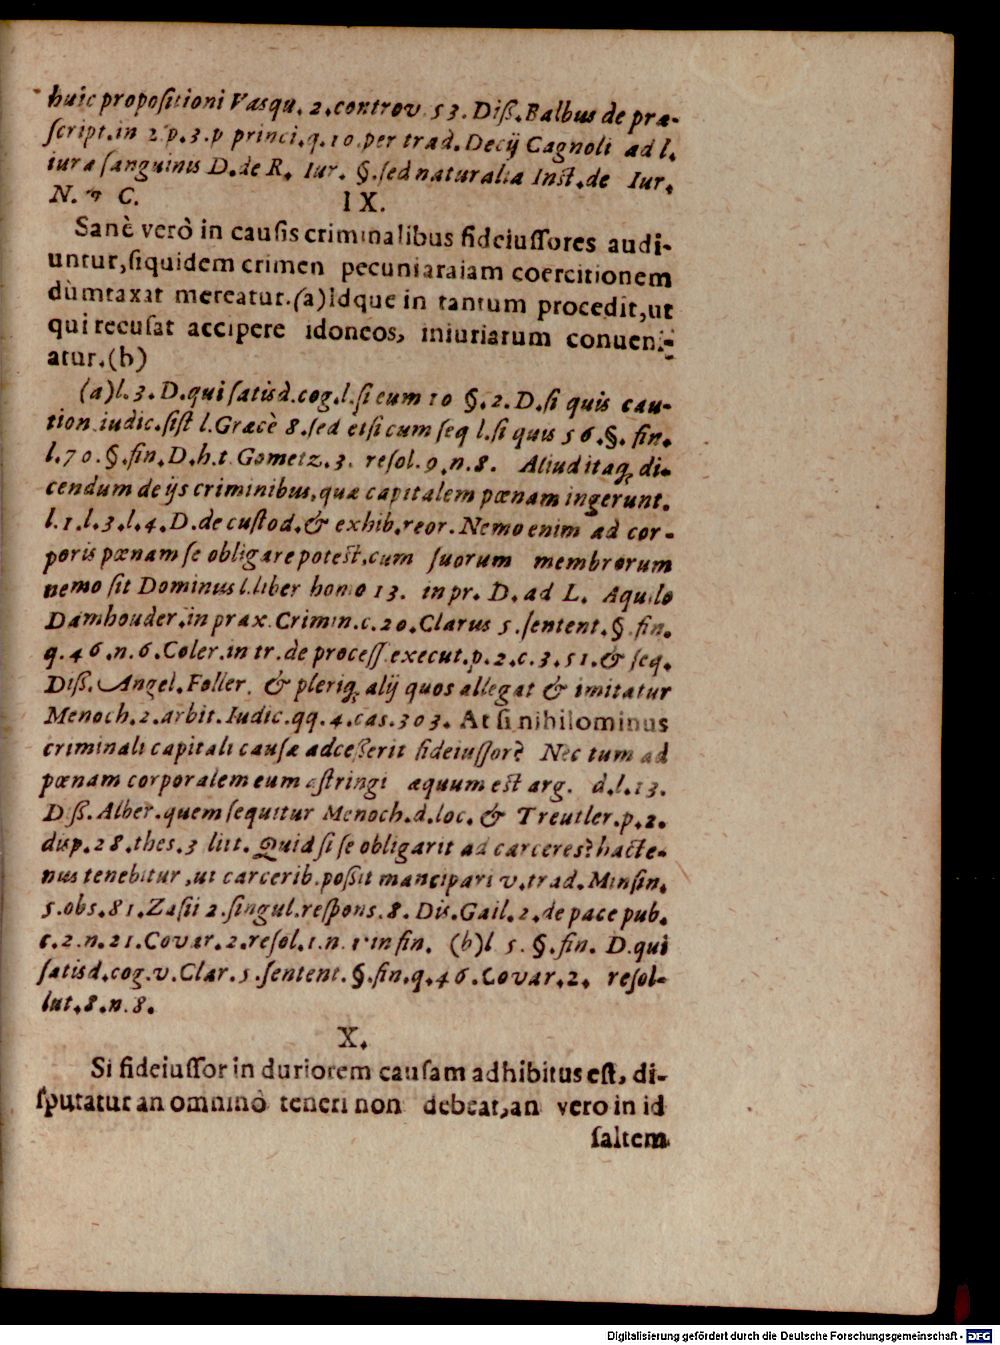 huic propoſitioni Vaſqu. 2. controv. 53. Diſſ. Balbus de præ-
ſcript. in 2 p. 3. p princi. q. 10. per trad. Decij Cagnoli ad l.
iura ſanguinis D. de R. Iur. §. ſed naturalia Inſt. de Iur.
N. & C.
IX.
Sanè verò in cauſis criminalibus fideiuſſores audi-
untur, ſiquidem crimen pecuniaraiam coercitionem
dùmtaxat mereatur. (a) Idque in tantum procedit, ut
qui recuſat accipere idoneos, iniuriarum conueni-
atur. (b)
(a) l. 3. D. qui ſatisd. cog. l. ſi eum 10 §. 2. D. ſi quis cau-
tion. iudic. ſiſt l. Græcè 8. ſed etſi cum ſeq l. ſi quis 56. §. fin.
l. 70. §. fin. D. h. t. Gometz. 3. reſol. 9. n. 8. Aliud itaq; di-
cendum de ijs criminibus, quæ capitalem pœnam ingerunt.
l. 1. l. 3. l. 4. D. de cuſtod. & exhib. reor. Nemo enim ad cor-
poris pœnam ſe obligare poteſt, cum ſuorum membrorum
nemo ſit Dominus l. liber homo 13. in pr. D. ad L. Aquilo
Damhouder. in prax. Crimin. c. 20. Clarus 5. ſentent. §. fin.
q. 46. n. 6. Coler. in tr. de proceſſ. execut. p. 2. c. 3. 51. & ſeq.
Diſſ. Angel. Foller. & pleriq; alij quos allegat & imitatur
Menoch. 2. arbit. Iudic. qq. 4. cas. 303. At ſi nihilominus
criminali capitali cauſæ adceſſerit fideiuſſor? Nec tum ad
pœnam corporalem eum aſtringi æquum eſt arg. d. l. 13.
Diſſ. Alber. quem ſequitur Menoch. d. loc. & Treutler. p. 2.
diſp. 28. thes. 3 litt. Quid ſi ſe obligarit ad carceres? hacte-
nus tenebitur, ut carcerib. poſſit mancipari v. trad. Minſin.
5. obs. 81. Zaſii 2. ſingul. reſpons. 8. Dis. Gail. 2. de pace pub.
c. 2. n. 21. Covar. 2. reſol. 1. n. 1 in fin. (b) l 5. §. fin. D. qui
ſatisd. cog. v. Clar. 5. ſentent. §. fin. q. 46. Covar. 2. reſol-
lut. 8. n. 8.
X.
Si fideiuſſor in duriorem cauſam adhibitus eſt, di-
ſputatur an omninò teneri non debeat, an vero in id
ſaltem
Digitalisierung gefördert durch die Deutsche Forschungsgemeinschaft - DFG